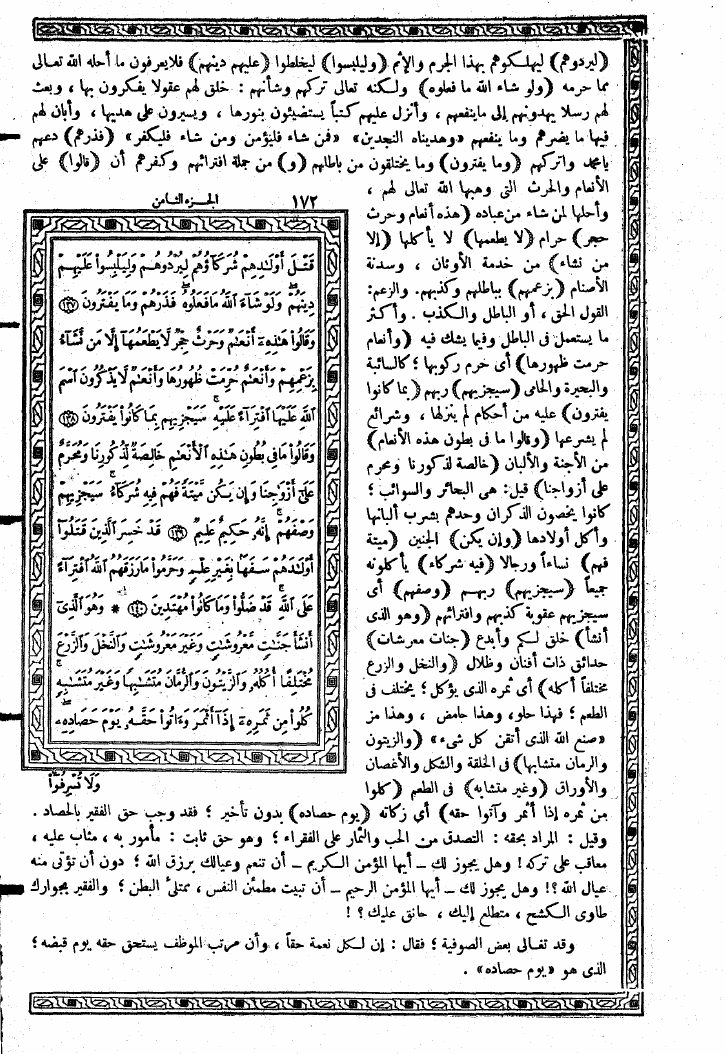 (ليردوهم) ليهلكوهم بهذا الجرم والإثم (وليلبسوا) ليخلطوا (عليهم دينهم) فلا يعرفون ما أحله الله تعالى
مما حرمه (ولو شاء الله ما فعلوه) ولكنه تعالى تركهم وشأنهم : خلق لهم عقولا يفكرون بها ، وبعث
لهم رسلا يهدونهم إلى ما ينفعهم ، وأنزل عليهم كتباً يستضيئون بنورها ، ويسيرون على هديها ، وأبان لهم
فيها ما يضرهم وما ينفعهم «وهديناه النجدين» «فمن شاء فليؤمن ومن شاء فليكفر» (فذرهم) دعهم
يا محمد واتركهم (وما يفترون) وما يختلقون من باطلهم (و) من جملة افترائهم وكفرهم أن (قالوا) على
الأنعام والحرث التى وهبها الله تعالى لهم ،
وأحلها لمن شاء من عباده (هذه أنعام وحرث
حجر) حرام (لا يطعمها) لا يأكلها (إلا
من نشاء) من خدمة الأوثان ، وسدنة
الأصنام (بزعمهم) بباطلهم وكذبهم . والزعم :
القول الحق ، أو الباطل والكذب . وأكثر
ما يستعمل فى الباطل وفيما يشك فيه (وأنعام
حرمت ظهورها) أى حرم ركوبها ؛ كالسائبة
والبحيرة والحامى (سيجزيهم) ربهم (بما كانوا
يفترون) عليه من أحكام لم ينزلها ، وشرائع
لم يشرعها (وقالوا ما فى بطون هذه الأنعام)
من الأجنة والألبان (خالصة لذكورنا ومحرم
على أزواجنا) قيل : هى البحائر والسوائب ؛
كانوا يخصون الذكران وحدهم بشرب ألبانها
وأكل أولادها (وإن يكن) الجنين (ميتة
فهم) نساءاً ورجالا (فيه شركاء) يأكلونه
جميعاً (سيجزيهم) ربهم (وصفهم) أى
سيجزيهم عقوبة كذبهم وافترائهم (وهو الذى
أنشأ) خلق لكم وأبدع (جنات معرشات)
حدائق ذات أفنان وظلال (والنخل والزرع
مختلفاً أكله) أى ثمره الذى يؤكل ؛ يختلف فى
الطعم ؛ فهذا حلو ، وهذا حامض ، وهذا مز
«صنع الله الذى أتقن كل شىء» (والزيتون
والرمان متشابها) فى الخلقة والشكل والأغصان
والأوراق (وغير متشابه) فى الطعم (كلوا
١٧٢ الجزء الثامن
قَتْلَ أَوْلَٰدِهِمْ شُرَكَآؤُهُمْ لِيُرْدُوهُمْ وَلِيَلْبِسُوا۟ عَلَيْهِمْ
دِينَهُمْ وَلَوْ شَآءَ ٱللَّهُ مَا فَعَلُوهُ فَذَرْهُمْ وَمَا يَفْتَرُونَ ﴿١٣٧﴾
وَقَالُوا۟ هَٰذِهِۦٓ أَنْعَٰمٌ وَحَرْثٌ حِجْرٌ لَّا يَطْعَمُهَآ إِلَّا مَن نَّشَآءُ
بِزَعْمِهِمْ وَأَنْعَٰمٌ حُرِّمَتْ ظُهُورُهَا وَأَنْعَٰمٌ لَّا يَذْكُرُونَ ٱسْمَ
ٱللَّهِ عَلَيْهَا ٱفْتِرَآءً عَلَيْهِ سَيَجْزِيهِم بِمَا كَانُوا۟ يَفْتَرُونَ ﴿١٣٨﴾
وَقَالُوا۟ مَا فِى بُطُونِ هَٰذِهِ ٱلْأَنْعَٰمِ خَالِصَةٌ لِّذُكُورِنَا وَمُحَرَّمٌ
عَلَىٰٓ أَزْوَٰجِنَا وَإِن يَكُن مَّيْتَةً فَهُمْ فِيهِ شُرَكَآءُ سَيَجْزِيهِمْ
وَصْفَهُمْ إِنَّهُۥ حَكِيمٌ عَلِيمٌ ﴿١٣٩﴾ قَدْ خَسِرَ ٱلَّذِينَ قَتَلُوٓا۟
أَوْلَٰدَهُمْ سَفَهًۢا بِغَيْرِ عِلْمٍ وَحَرَّمُوا۟ مَا رَزَقَهُمُ ٱللَّهُ ٱفْتِرَآءً
عَلَى ٱللَّهِ قَدْ ضَلُّوا۟ وَمَا كَانُوا۟ مُهْتَدِينَ ﴿١٤٠﴾ * وَهُوَ ٱلَّذِىٓ
أَنشَأَ جَنَّٰتٍ مَّعْرُوشَٰتٍ وَغَيْرَ مَعْرُوشَٰتٍ وَٱلنَّخْلَ وَٱلزَّرْعَ
مُخْتَلِفًا أُكُلُهُۥ وَٱلزَّيْتُونَ وَٱلرُّمَّانَ مُتَشَٰبِهًا وَغَيْرَ مُتَشَٰبِهٍ
كُلُوا۟ مِن ثَمَرِهِۦٓ إِذَآ أَثْمَرَ وَءَاتُوا۟ حَقَّهُۥ يَوْمَ حَصَادِهِۦ
وَلَا تُسْرِفُوٓا۟
من ثمره إذا أثمر وآتوا حقه) أى زكاته (يوم حصاده) بدون تأخير ؛ فقد وجب حق الفقير بالحصاد .
وقيل : المراد بحقه : التصدق من الحب والثمار على الفقراء ؛ وهو حق ثابت : مأمور به ، مثاب عليه ،
معاقب على تركه ! وهل يجوز لك - أيها المؤمن الكريم - أن تنعم وعيالك برزق الله ؛ دون أن تؤتى منه
عيال الله ؟! وهل يجوز لك - أيها المؤمن الرحيم - أن تبيت مطمئن النفس ، ممتلئ البطن ؛ والفقير بجوارك
طاوى الكشح ، متطلع إليك ، حانق عليك ؟ !
وقد تغالى بعض الصوفية ؛ فقال : إن لكل نعمة حقاً ، وأن مرتب الموظف يستحق حقه يوم قبضه ؛
الذى هو «يوم حصاده» .